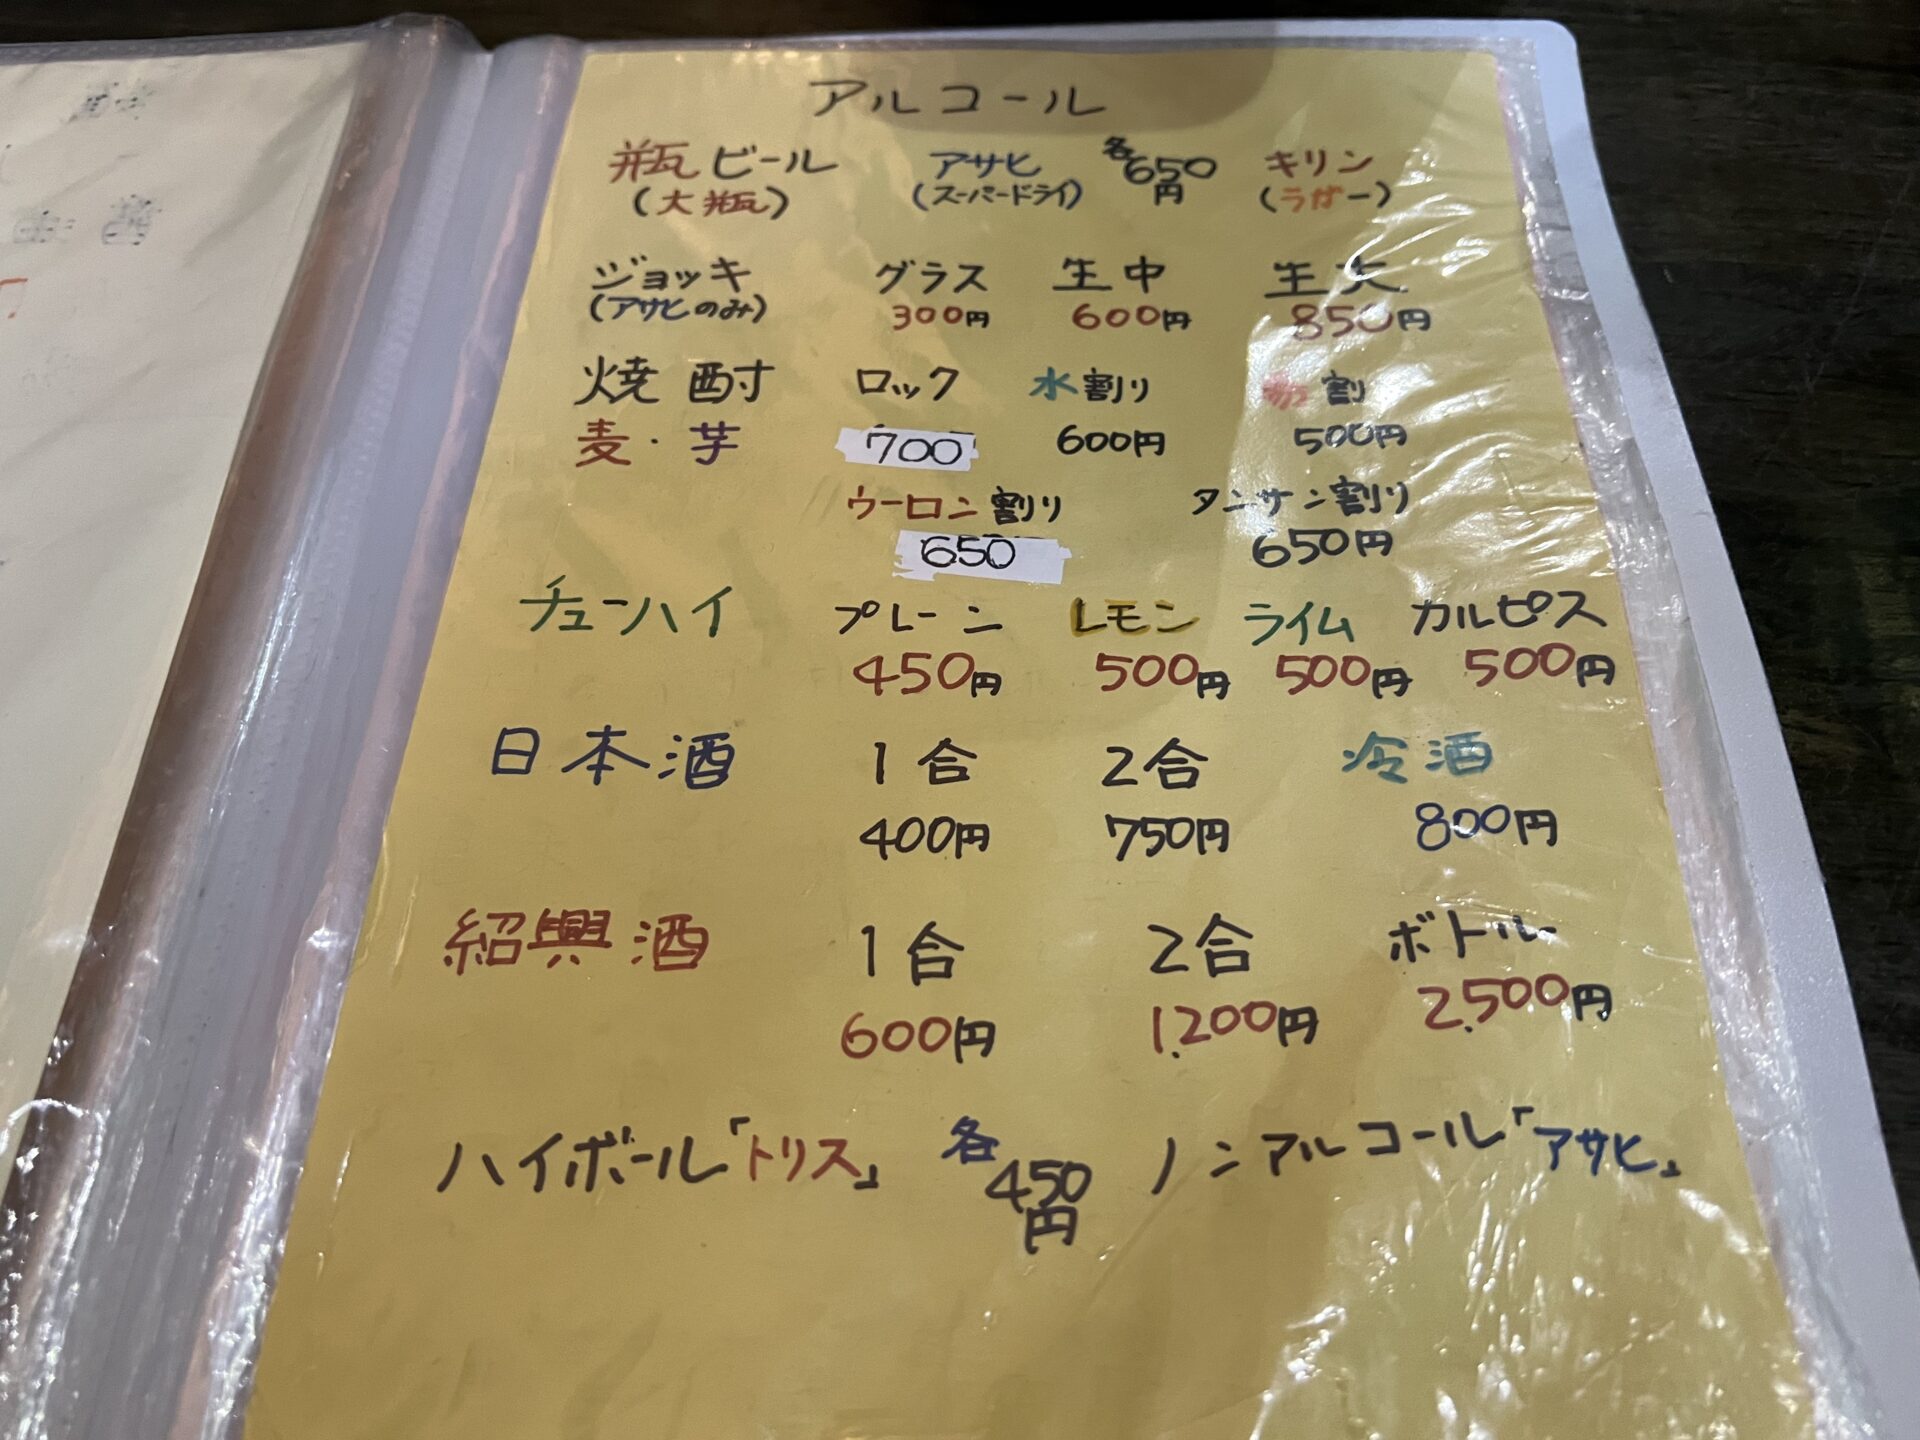 アルコール
瓶ビール アサヒ 各650円 キリン
(大瓶) (スーパードライ) (ラガー)
ジョッキ グラス 生中 生大
(アサヒのみ) 300円 600円 850円
焼酎 ロック 水割り 割
麦・芋 700 600円 500円
ウーロン割り タンサン割り
650 650円
チューハイ プレーン レモン ライム カルピス
450円 500円 500円 500円
日本酒 1合 2合 冷酒
400円 750円 800円
紹興酒 1合 2合 ボトル
600円 1,200円 2,500円
ハイボール「トリス」 各450円 ノンアルコール「アサヒ」